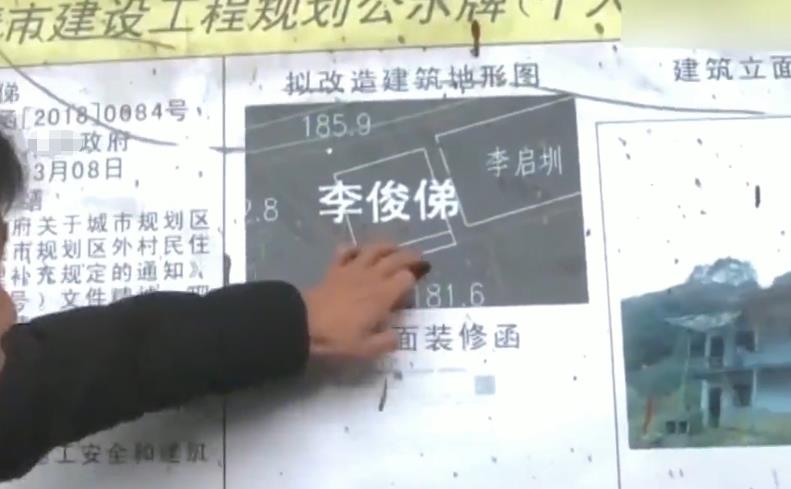 市建设工程规划公示牌(个人
俤
函[2018]0084号
政府
3月08日
府关于城市规划区
市规划区外村民住
补充规定的通知》
号)文件精神
工安全和建筑
拟改造建筑地形图
185.9
李启圳
李俊俤
2.8
181.6
面装修函
建筑立面